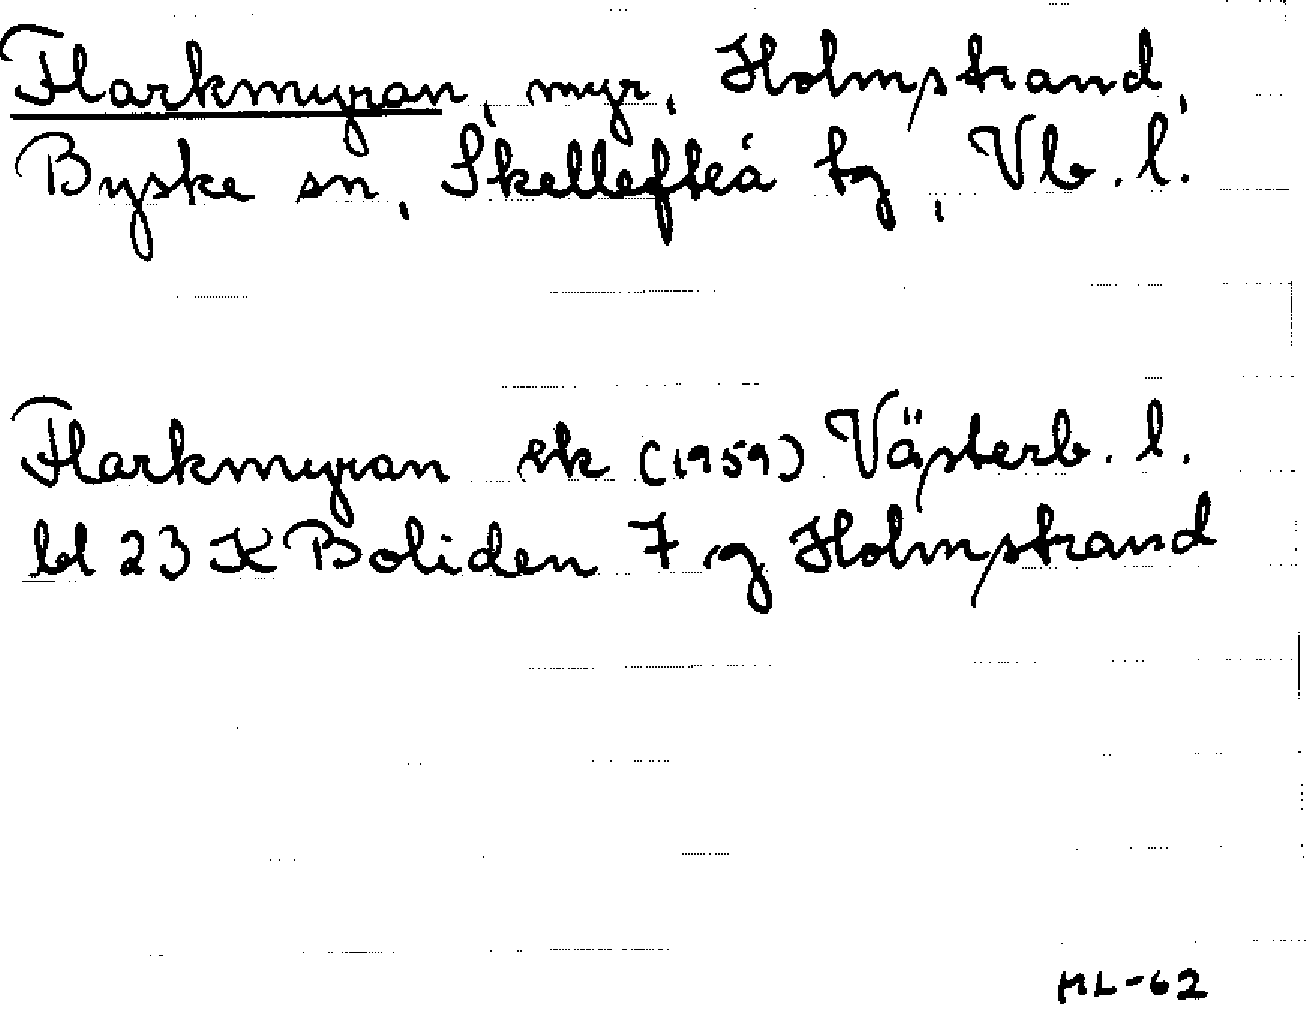 Flarkmyran, myr, Holmstrand,
Byske sn, Skellefteå tg, Vb. l.
Flarkmyran ek (1959) Västerb. l.
bl 23 K Boliden 7 g Holmstrand
ML-62